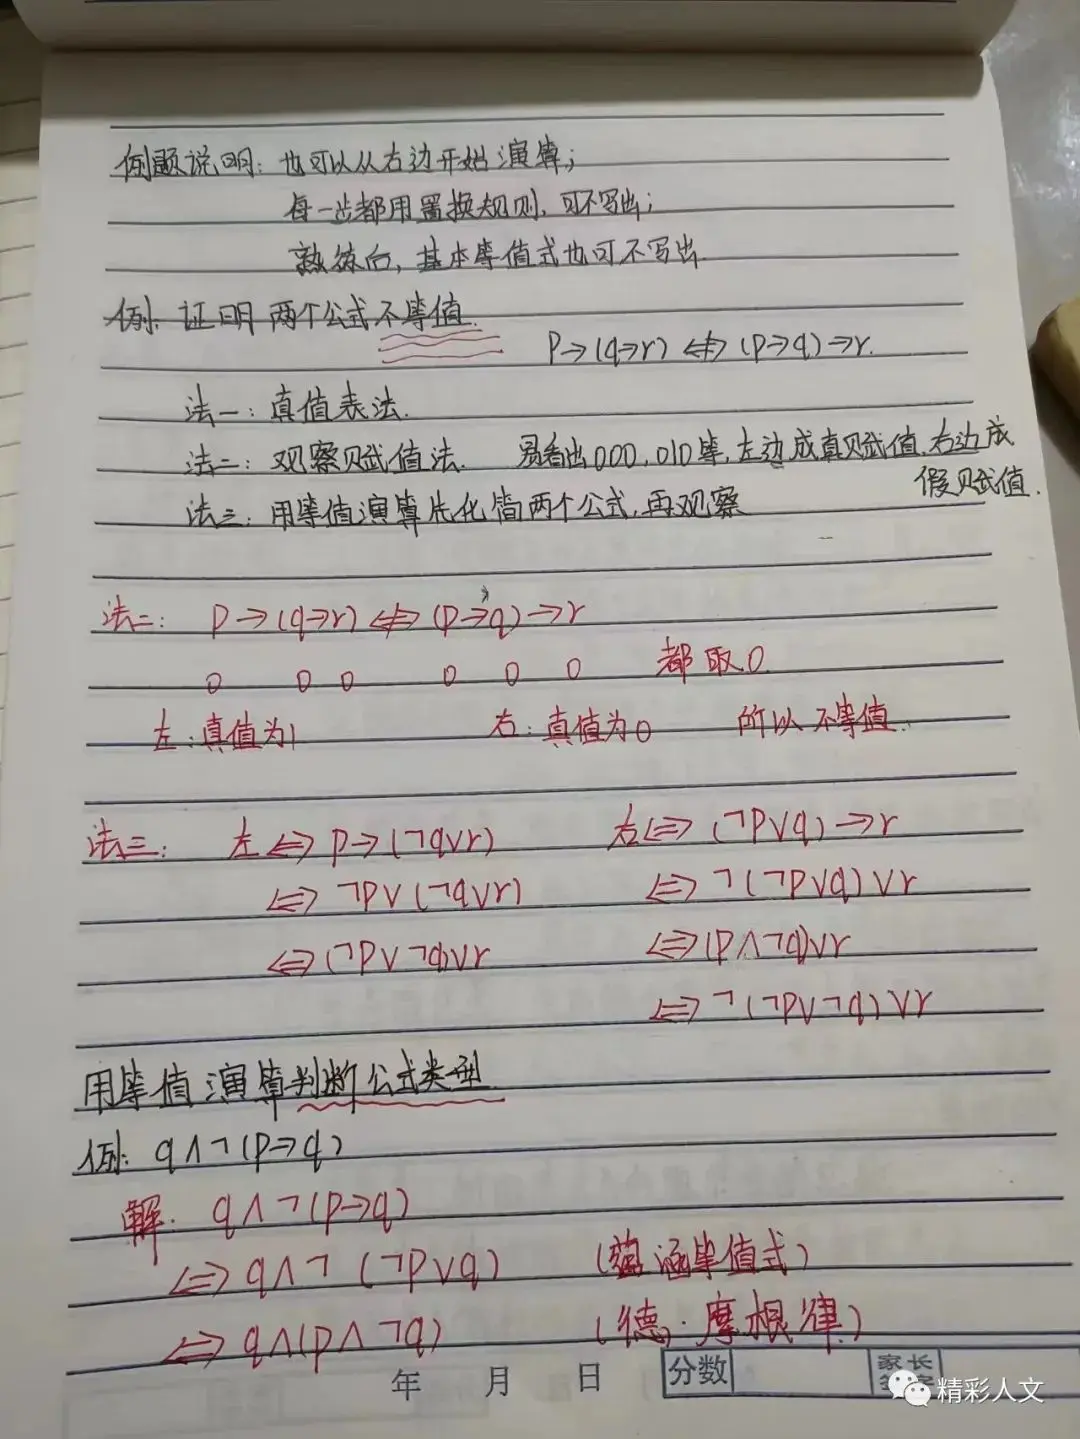 例题说明：也可以从右边开始演算；
每一步都用置换规则，可不写出；
熟练后，基本等值式也可不写出.
例：证明两个公式不等值.
p→(q→r) ⇎ (p→q)→r.
法一：真值表法.
法二：观察赋值法. 易看出000,010等,左边成真赋值,右边成
假赋值.
法三：用等值演算先化简两个公式,再观察
法二： p→(q→r) ⇎ (p→q)→r
0 0 0 0 0 0 都取0
左：真值为1 右：真值为0 所以不等值.
法三： 左⇔p→(¬q∨r) 右⇔(¬p∨q)→r
⇔¬p∨(¬q∨r) ⇔¬(¬p∨q)∨r
⇔(¬p∨¬q)∨r ⇔(p∧¬q)∨r
⇔¬(¬p∨¬q)∨r
用等值演算判断公式类型
例：q∧¬(p→q)
解. q∧¬(p→q)
⇔q∧¬(¬p∨q) (蕴涵等值式)
⇔q∧(p∧¬q) (德·摩根律)
年 月 日 分数 家长
精彩人文